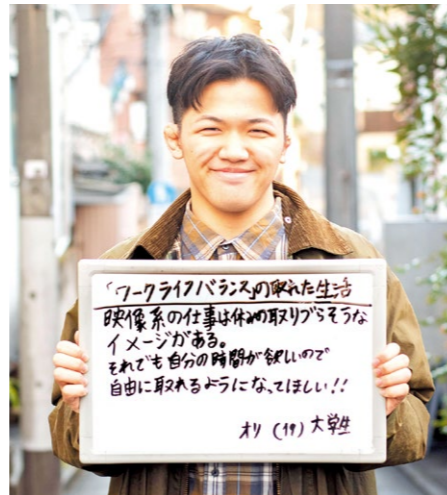 「ワークライフバランス」の取れた生活
映像系の仕事は休みの取りづらそうな
イメージがある。
それでも自分の時間が欲しいので
自由に取れるようになってほしい!!
オリ (19) 大学生